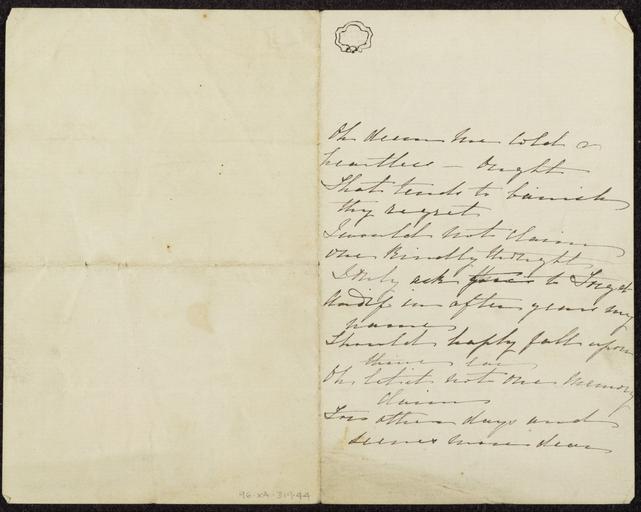 Oh deem me cold &
heartless - ought
That tends to banish
thy regret
I would not claim
one kindly thought
I only ask thee to forget
And if in after years my
name
Should haply fall upon
thine ear
Oh let it not one memory
claim
From other days and
scenes more dear
96.XA.319.44